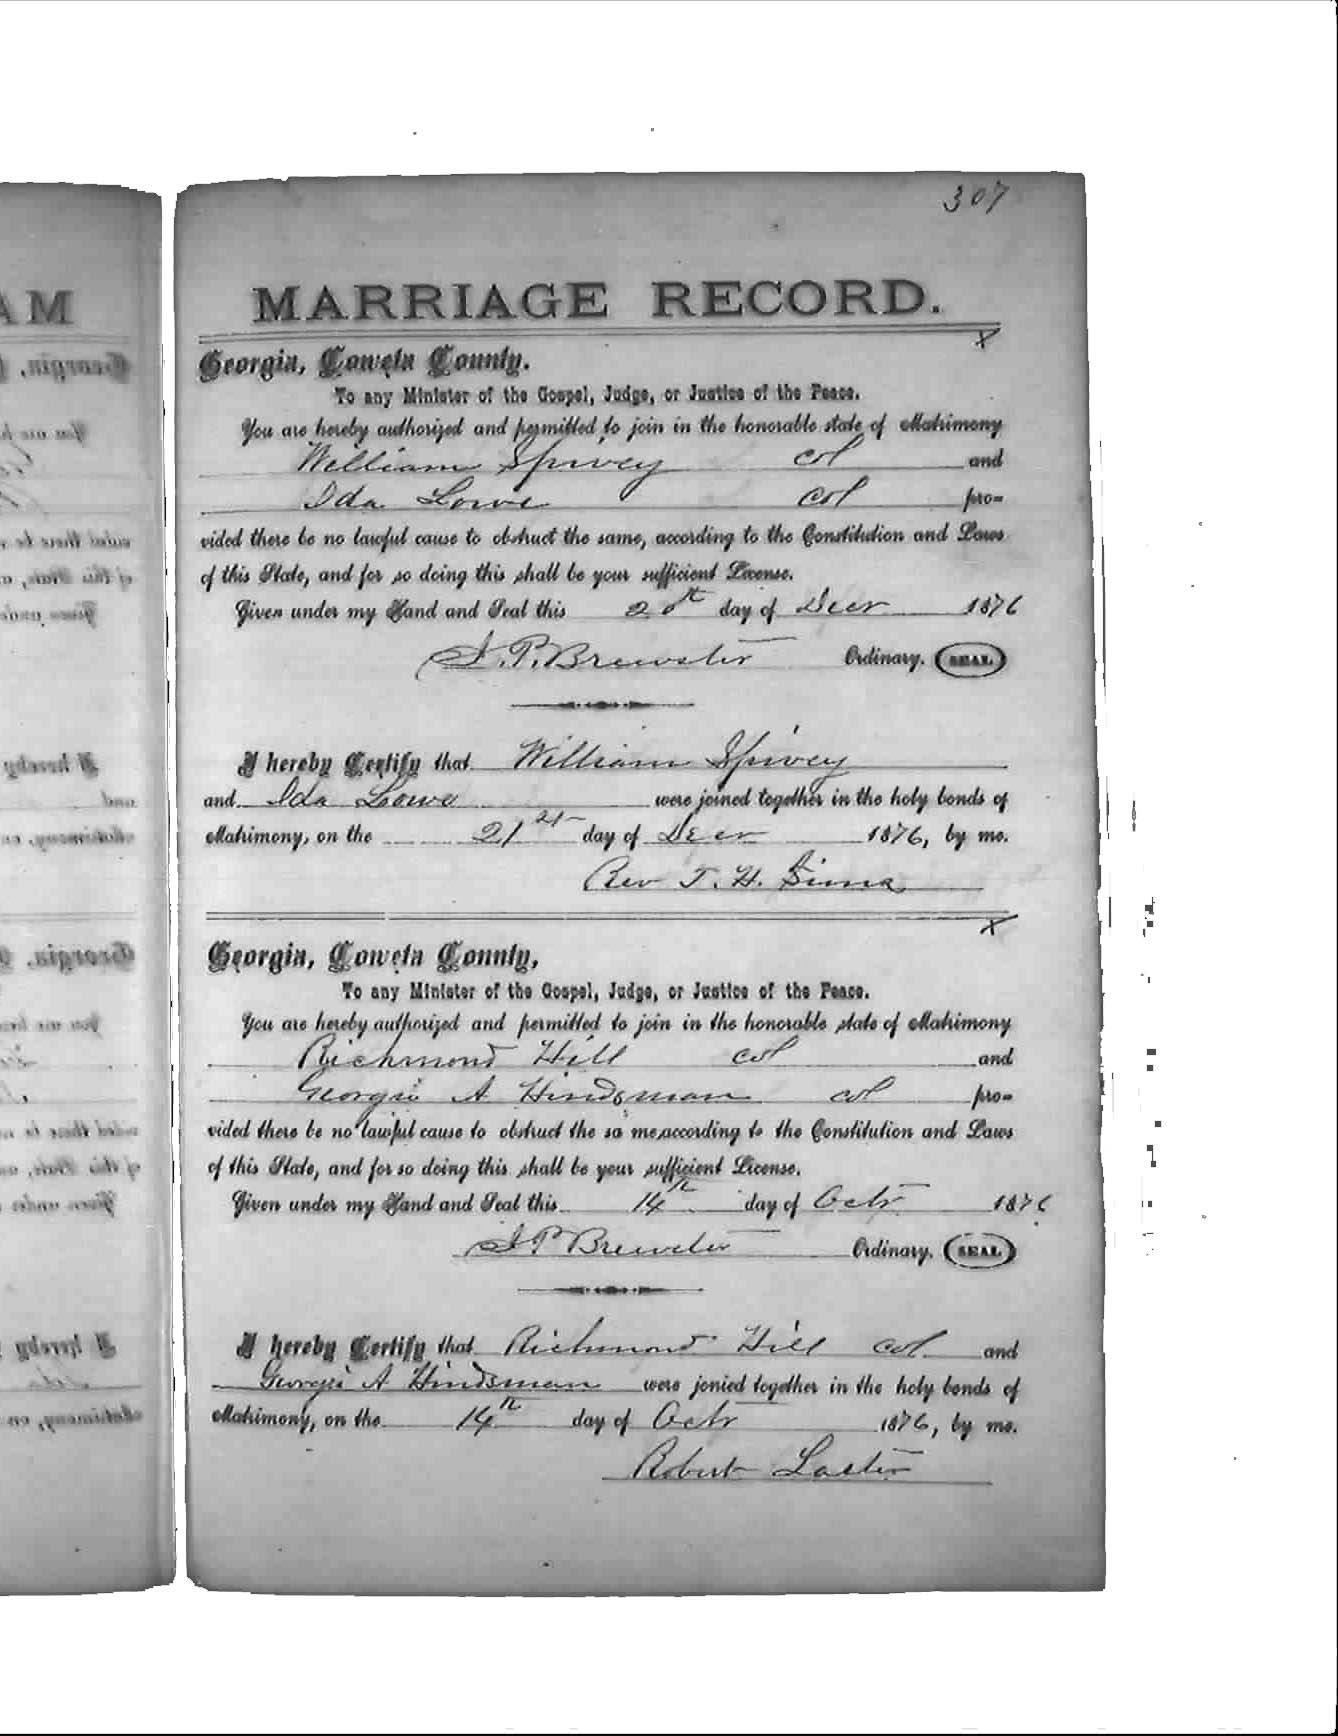 307
MARRIAGE RECORD.
X
Georgia, Coweta County.
To any Minister of the Gospel, Judge, or Justice of the Peace.
You are hereby authorized and permitted to join in the honorable state of Matrimony
William Spivey col and
Ida Lowe col pro=
vided there be no lawful cause to obstruct the same, according to the Constitution and Laws
of this State, and for so doing this shall be your sufficient License.
Given under my Hand and Seal this 20th day of Decr 1876
J. P. Brewster Ordinary. SEAL
I hereby Certify that William Spivey
and Ida Lowe were joined together in the holy bonds of
Matrimony, on the 21st day of Decr 1876, by me.
Rev T. H. Sims
X
Georgia, Coweta County,
To any Minister of the Gospel, Judge, or Justice of the Peace.
You are hereby authorized and permitted to join in the honorable state of Matrimony
Richmond Hill col and
Georgie A Hindsman col pro=
vided there be no lawful cause to obstruct the sa me,according to the Constitution and Laws
of this State, and for so doing this shall be your sufficient License.
Given under my Hand and Seal this 14th day of Octr 1876
J P Brewster Ordinary. SEAL
I hereby Certify that Richmond Hill col and
Georgie A Hindsman were jonied together in the holy bonds of
Matrimony, on the 14th day of Octr 1876, by me.
Robert Laster